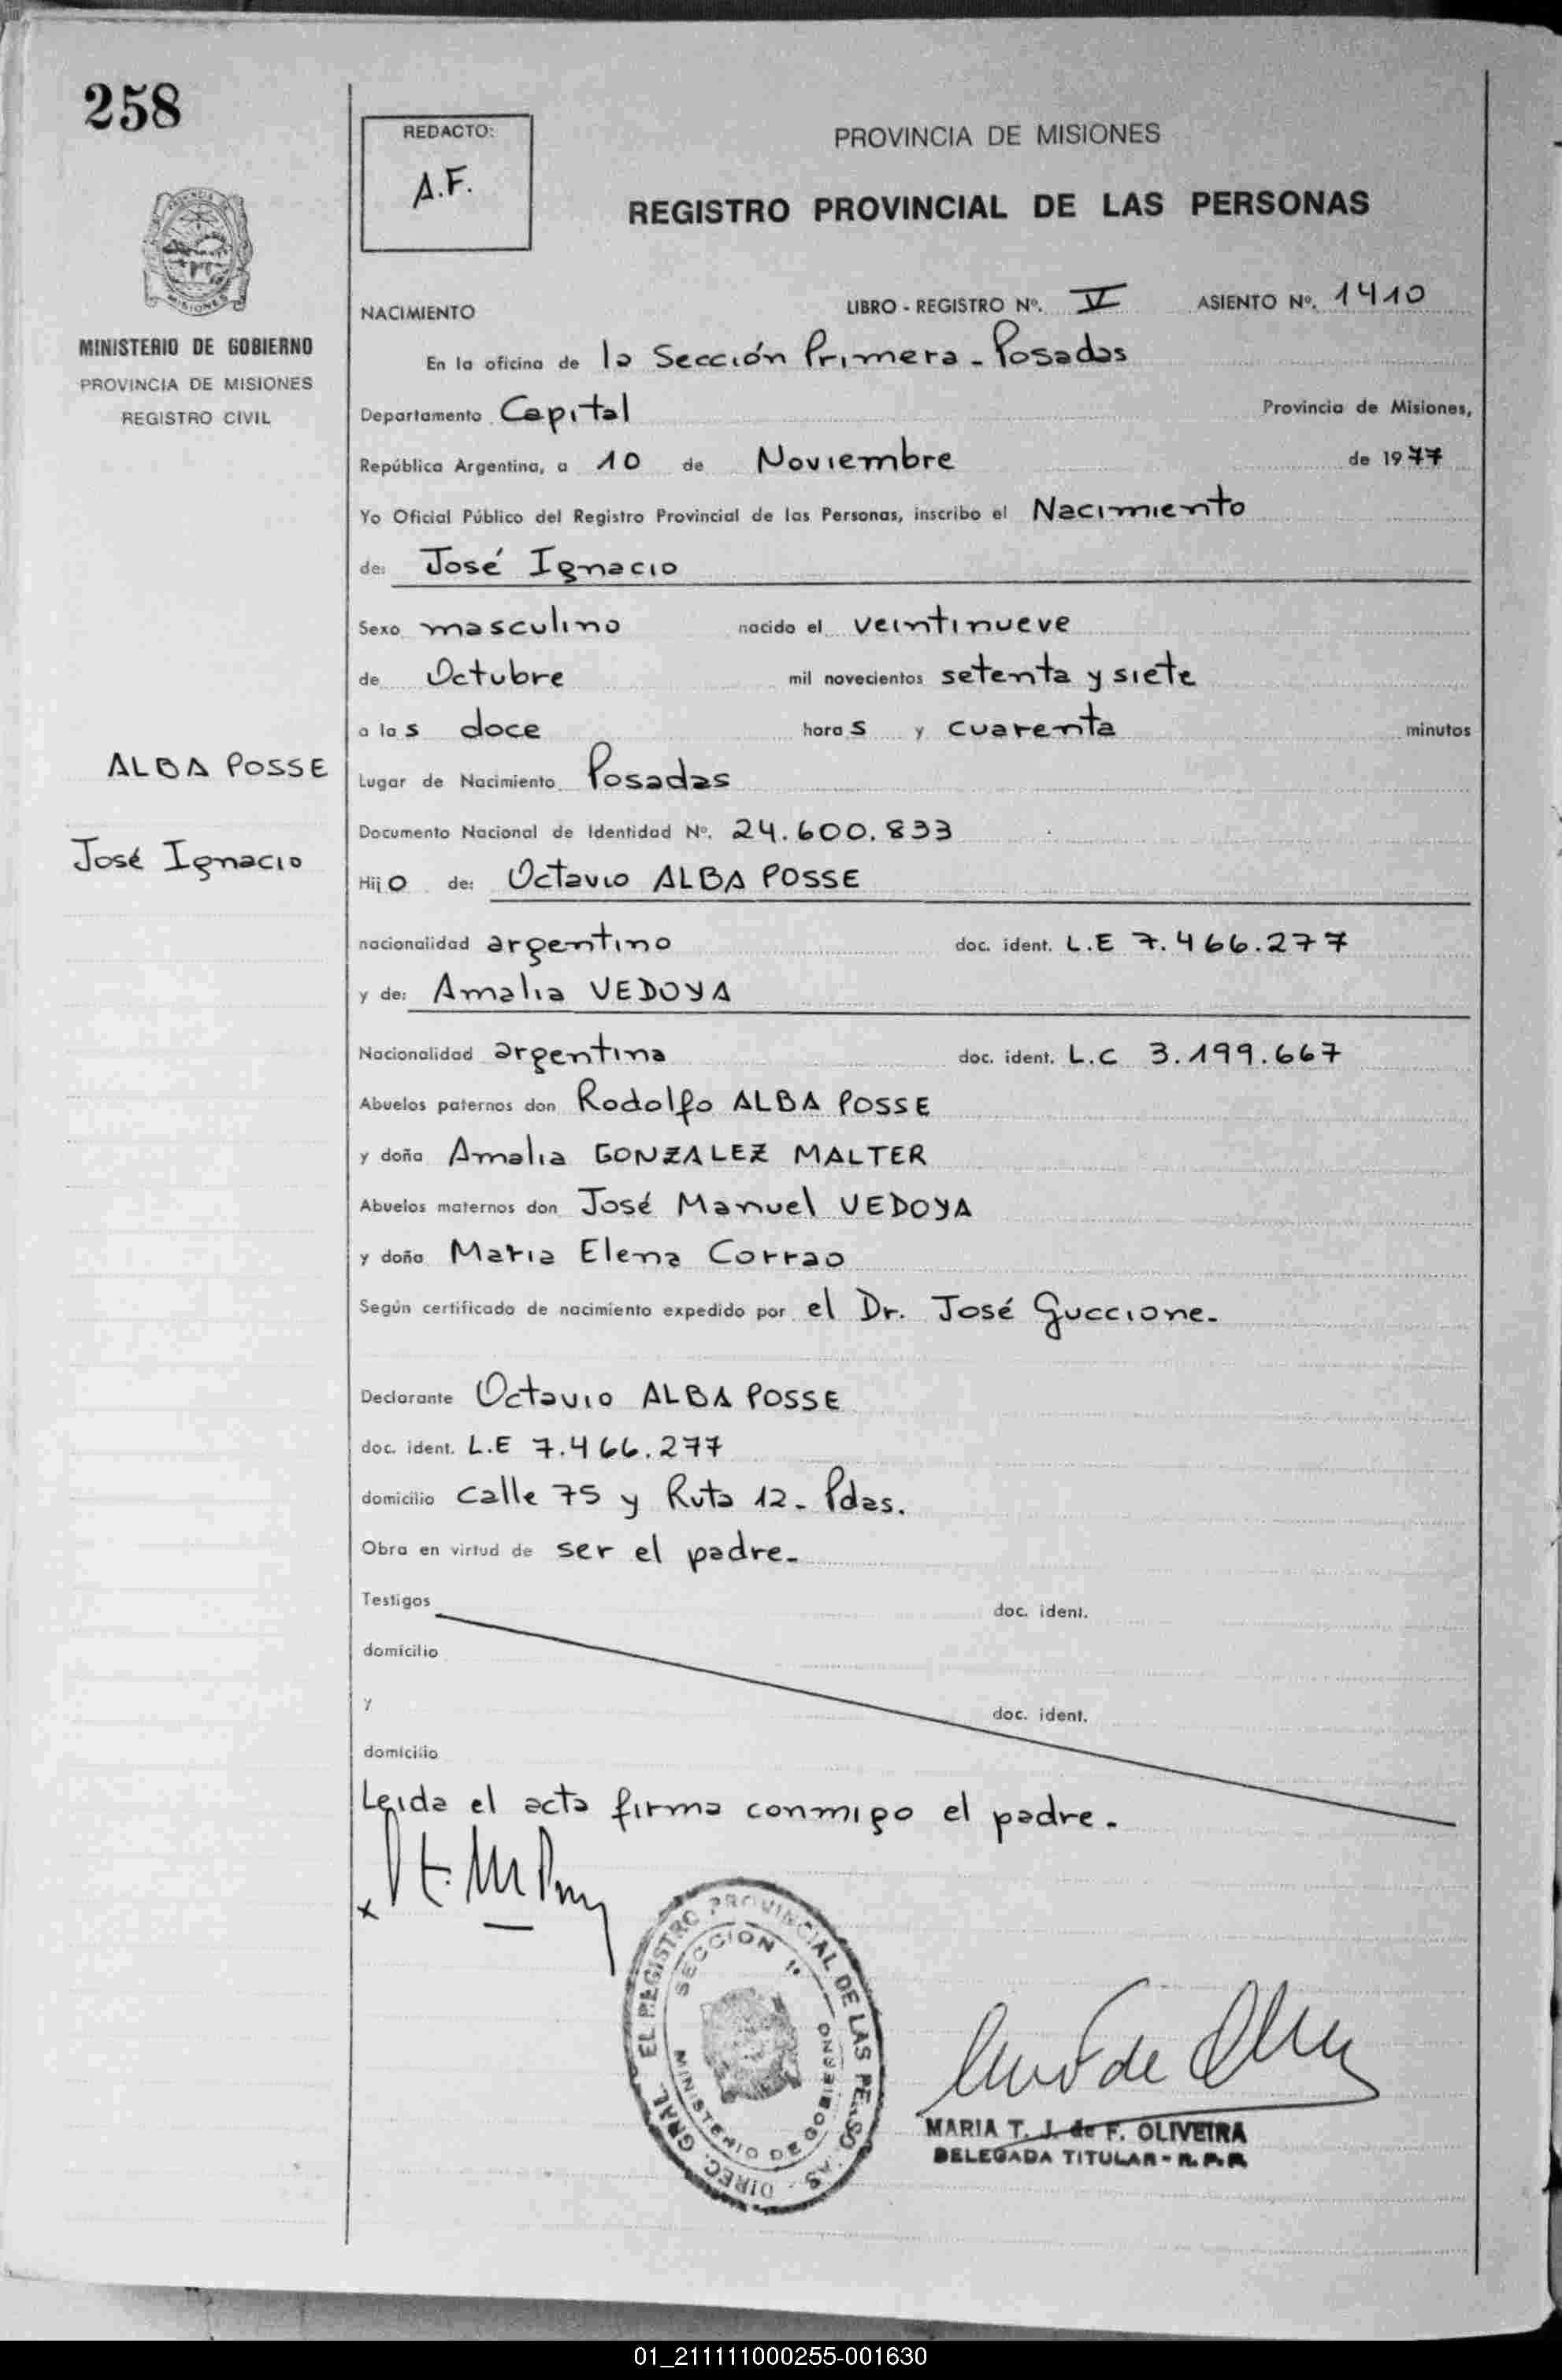 258
REDACTO:
A.F.
PROVINCIA DE MISIONES
REGISTRO PROVINCIAL DE LAS PERSONAS
MISIONES
MINISTERIO DE GOBIERNO
PROVINCIA DE MISIONES
REGISTRO CIVIL
NACIMIENTO LIBRO - REGISTRO Nº. V ASIENTO Nº. 1410
En la oficina de la Sección Primera - Posadas
Departamento Capital Provincia de Misiones,
República Argentina, a 10 de Noviembre de 1977
Yo Oficial Público del Registro Provincial de las Personas, inscribo el Nacimiento
de: José Ignacio
Sexo masculino nacido el veintinueve
de Octubre mil novecientos setenta y siete
a las doce horas y cuarenta minutos
ALBA POSSE
Lugar de Nacimiento Posadas
Documento Nacional de Identidad Nº. 24.600.833
José Ignacio
Hijo de: Octavio ALBA POSSE
nacionalidad argentino doc. ident. L.E 7.466.277
y de: Amalia VEDOYA
Nacionalidad argentina doc. ident. L.C 3.199.667
Abuelos paternos don Rodolfo ALBA POSSE
y doña Amalia GONZALEZ MALTER
Abuelos maternos don José Manuel VEDOYA
y doña Maria Elena Corrao
Según certificado de nacimiento expedido por el Dr. José Guccione.
Declarante Octavio ALBA POSSE
doc. ident. L.E 7.466.277
domicilio calle 75 y Ruta 12 - Pdas.
Obra en virtud de ser el padre.
Testigos doc. ident.
domicilio
y doc. ident.
domicilio
Leida el acta firma conmigo el padre.
x
DIREC. GRAL. EL REGISTRO PROVINCIAL DE LAS PERSO AS
SECCION 1ª
MINISTERIO DE GOBIERNO
MARIA T. J. de F. OLIVEIRA
DELEGADA TITULAR - R.P.P.
01_211111000255-001630